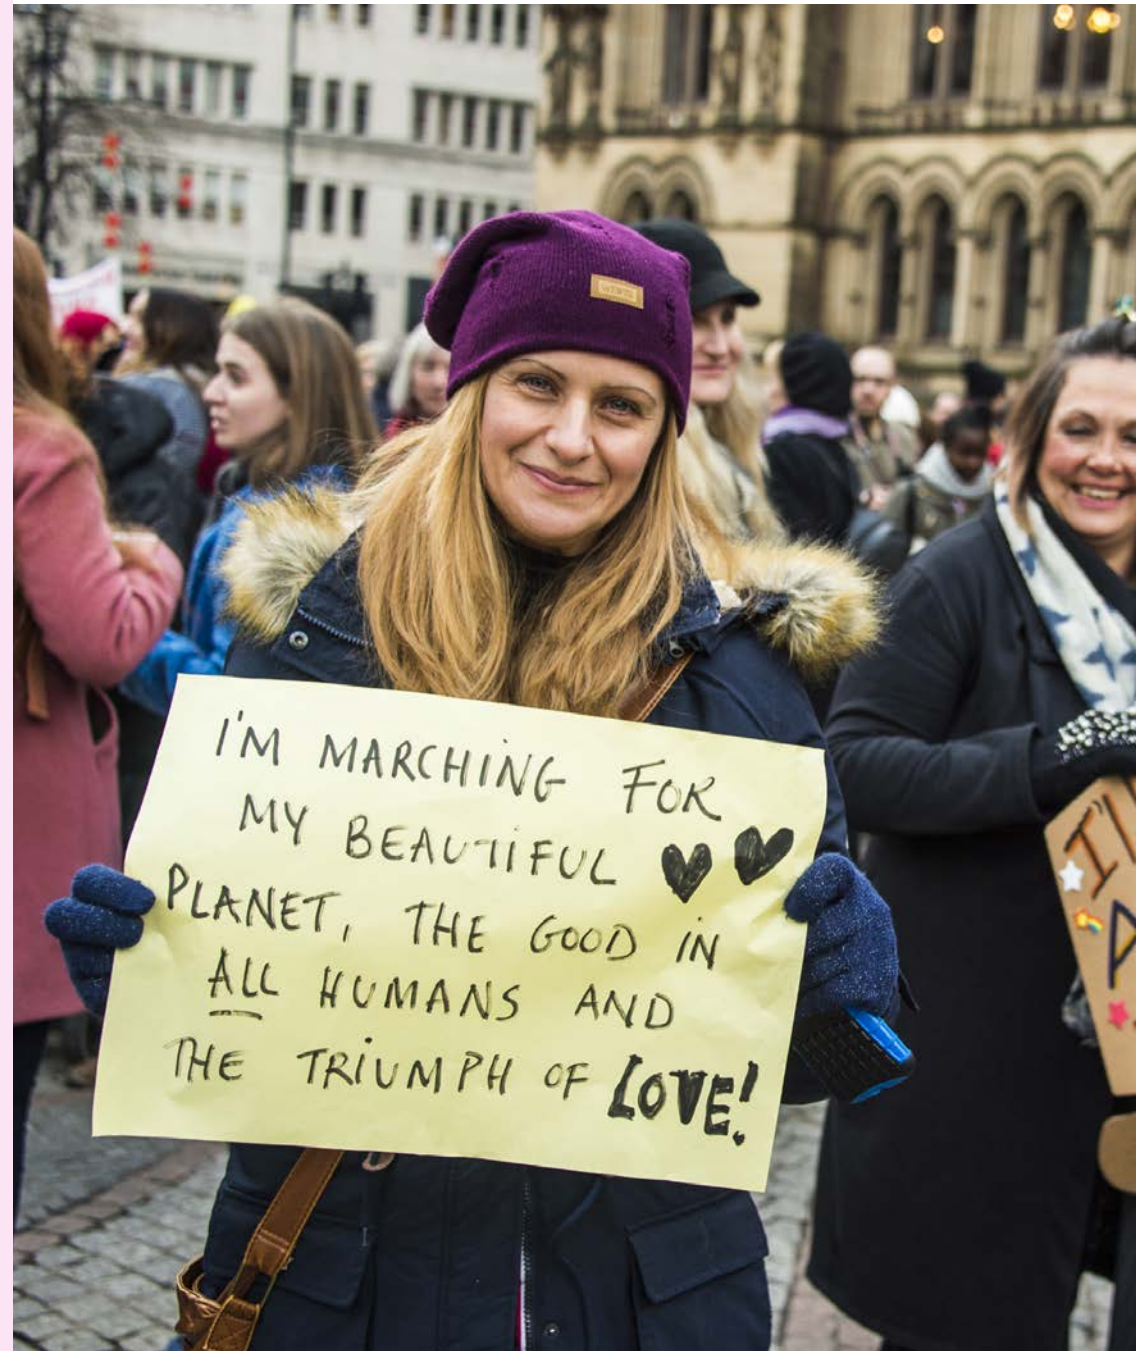 I'M MARCHING FOR
MY BEAUTIFUL
PLANET, THE GOOD IN
ALL HUMANS AND
THE TRIUMPH OF LOVE!
I'L